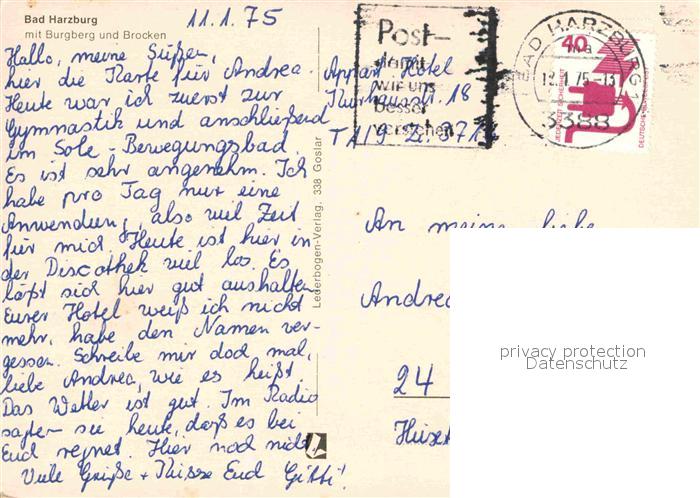 Bad Harzburg
mit Burgberg und Brocken
11.1.75
Hallo, meine Süßen,
hier die Karte für Andrea.
Heute war ich zuerst zur
Gymnastik und anschließend
im Sole-Bewegungsbad.
Es ist sehr angenehm. Ich
habe pro Tag nur eine
Anwendung, also viel Zeit
für mich. Heute ist hier in
der Discothek viel los. Es
läßt sich hier gut aushalten.
Eurer Hotel weiß ich nicht
mehr, habe den Namen ver-
gessen. Schreibe mir doch mal,
liebe Andrea, wie es heißt.
Das Wetter ist gut. Im Radio
sagten sie heute, daß es bei
Euch regnet. Hier noch nicht.
Viele Grüße + Küsse Eud Gitti!
Appart Hotel
18
Post-
damit
wir uns
besser
verstehen
BAD HARZBURG 1
75-13
3388
40
Lederbogen-Verlag, 338 Goslar
An meine liebe
Andrea
24
privacy protection
Datenschutz